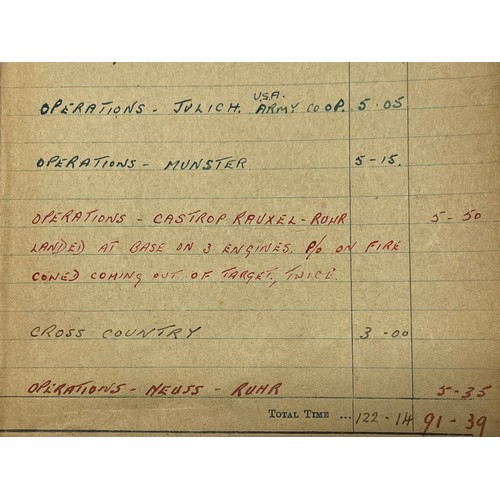 OPERATIONS - JULICH. U.S.A. ARMY CO OP. 5.05
OPERATIONS - MUNSTER 5-15.
OPERATIONS - CASTROP RAUXEL - RUHR 5-50
LANDED AT BASE ON 3 ENGINES. P/O ON FIRE
CONED COMING OUT OF TARGET, TWICE
CROSS COUNTRY 3-00
OPERATIONS - NEUSS - RUHR 5-35
TOTAL TIME ... 122-14 91-39